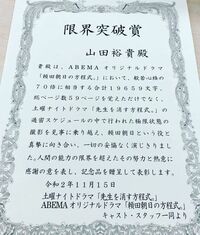 限界突破賞
山田裕貴殿
貴殿は、ABEMAオリジナルドラマ
「頼田朝日の方程式。」において、般若心経の
70倍に相当する合計19659文字、
総ページ数59ページを覚えただけでなく、
土曜ナイトドラマ「先生を消す方程式。」の
過密スケジュールの中で行われた極限状態の
撮影を見事に乗り越え、頼田朝日という役と
真摯に向き合い、一切の妥協なく演じきりまし
た。人間の能力の限界を超えたその努力と熱意に
感謝の意を表し、記念品を贈呈して表彰します。
令和2年11月15日
土曜ナイトドラマ「先生を消す方程式。」
ABEMAオリジナルドラマ「頼田朝日の方程式。」
キャスト・スタッフ一同より